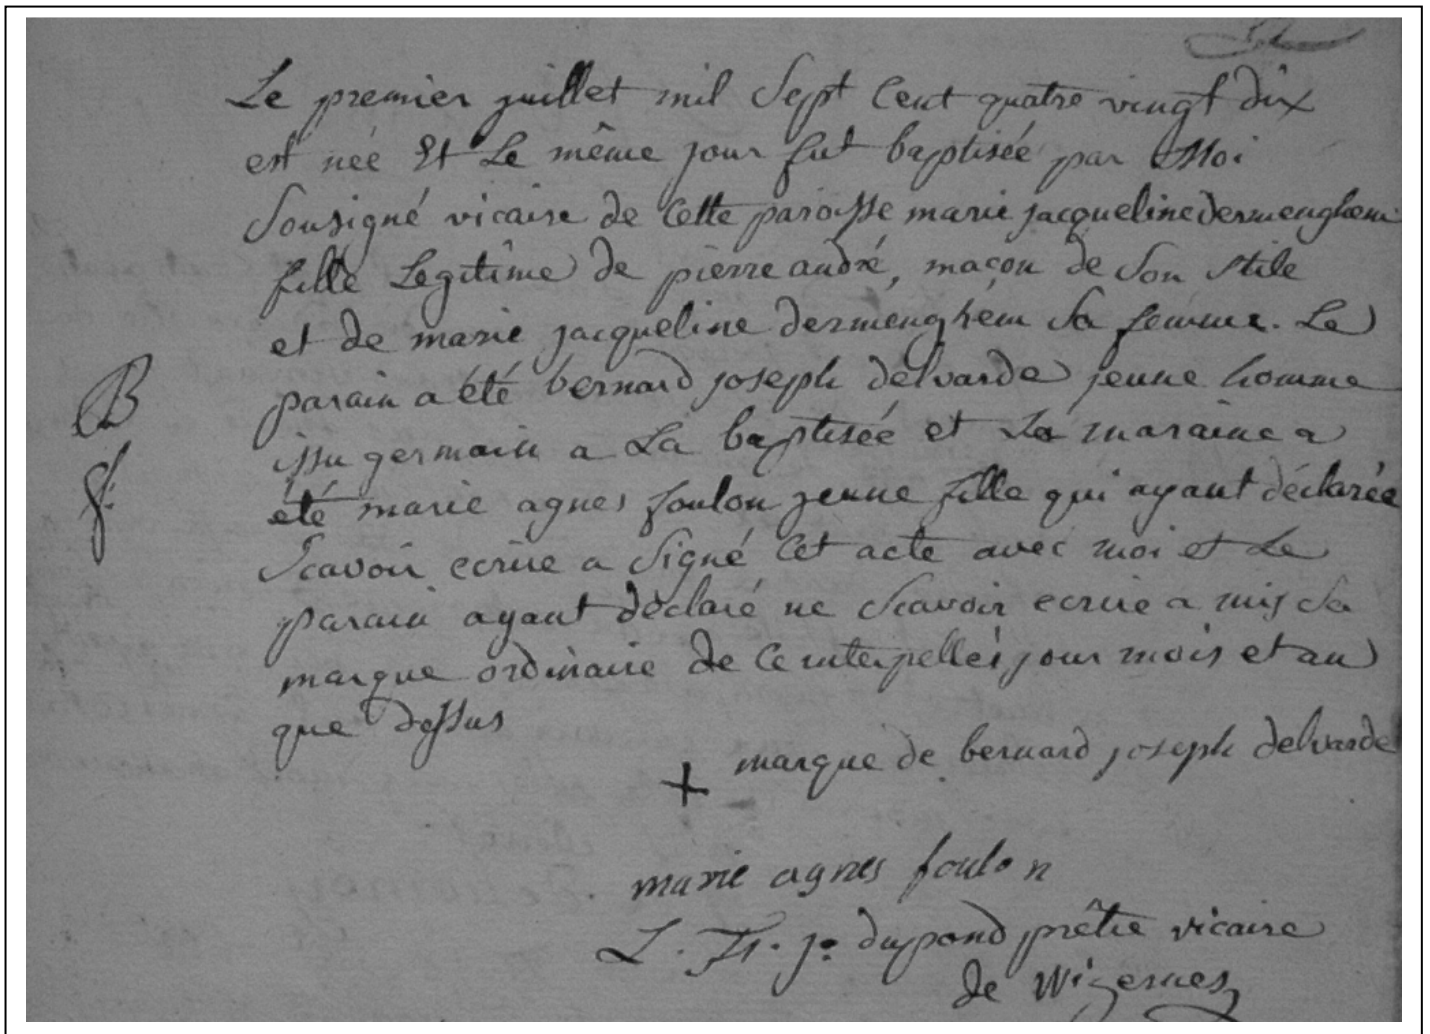 Le premier juillet mil Sept Cent quatre vingt dix
est née Et Le même jour fut baptisée par Moi
Sousigné vicaire de Cette paroisse marie jacqueline dermenghem
fille Legitime de pierre andré, maçon de Son stile
et de marie jacqueline dermenghem Sa femme. Le
parain a été bernard joseph delvarde jeune homme
issu germain a La baptisée et La maraine a
B
été marie agnes foulon jeune fille qui ayant déclarée
f.
Scavoir ecrire a Signé Cet acte avec moi et Le
parain ayant déclaré ne Scavoir ecrire a mis Sa
marque ordinaire de Ce interpellés jour mois et an
que dessus
+ marque de bernard joseph delvarde
marie agnes foulon
L. Fr. jo. dupond prêtre vicaire
de Wizernes